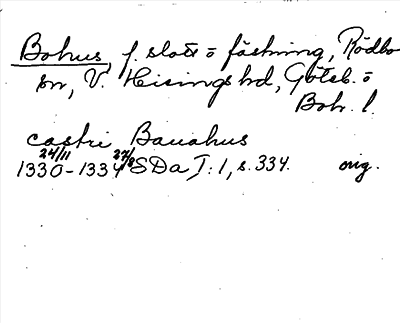 Bohus, f. slott o fästning, Rödbo
sn, V. Hisings hd, Göteb. o
Boh. l.
castri Bauahus
24/11 27/8
1330-1334 SDa I:1, s. 334. orig.